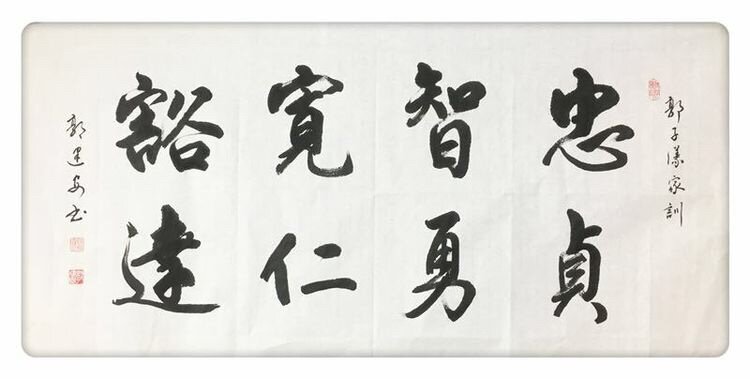 郭子儀家訓
忠貞
智勇
寬仁
豁達
郭建安书